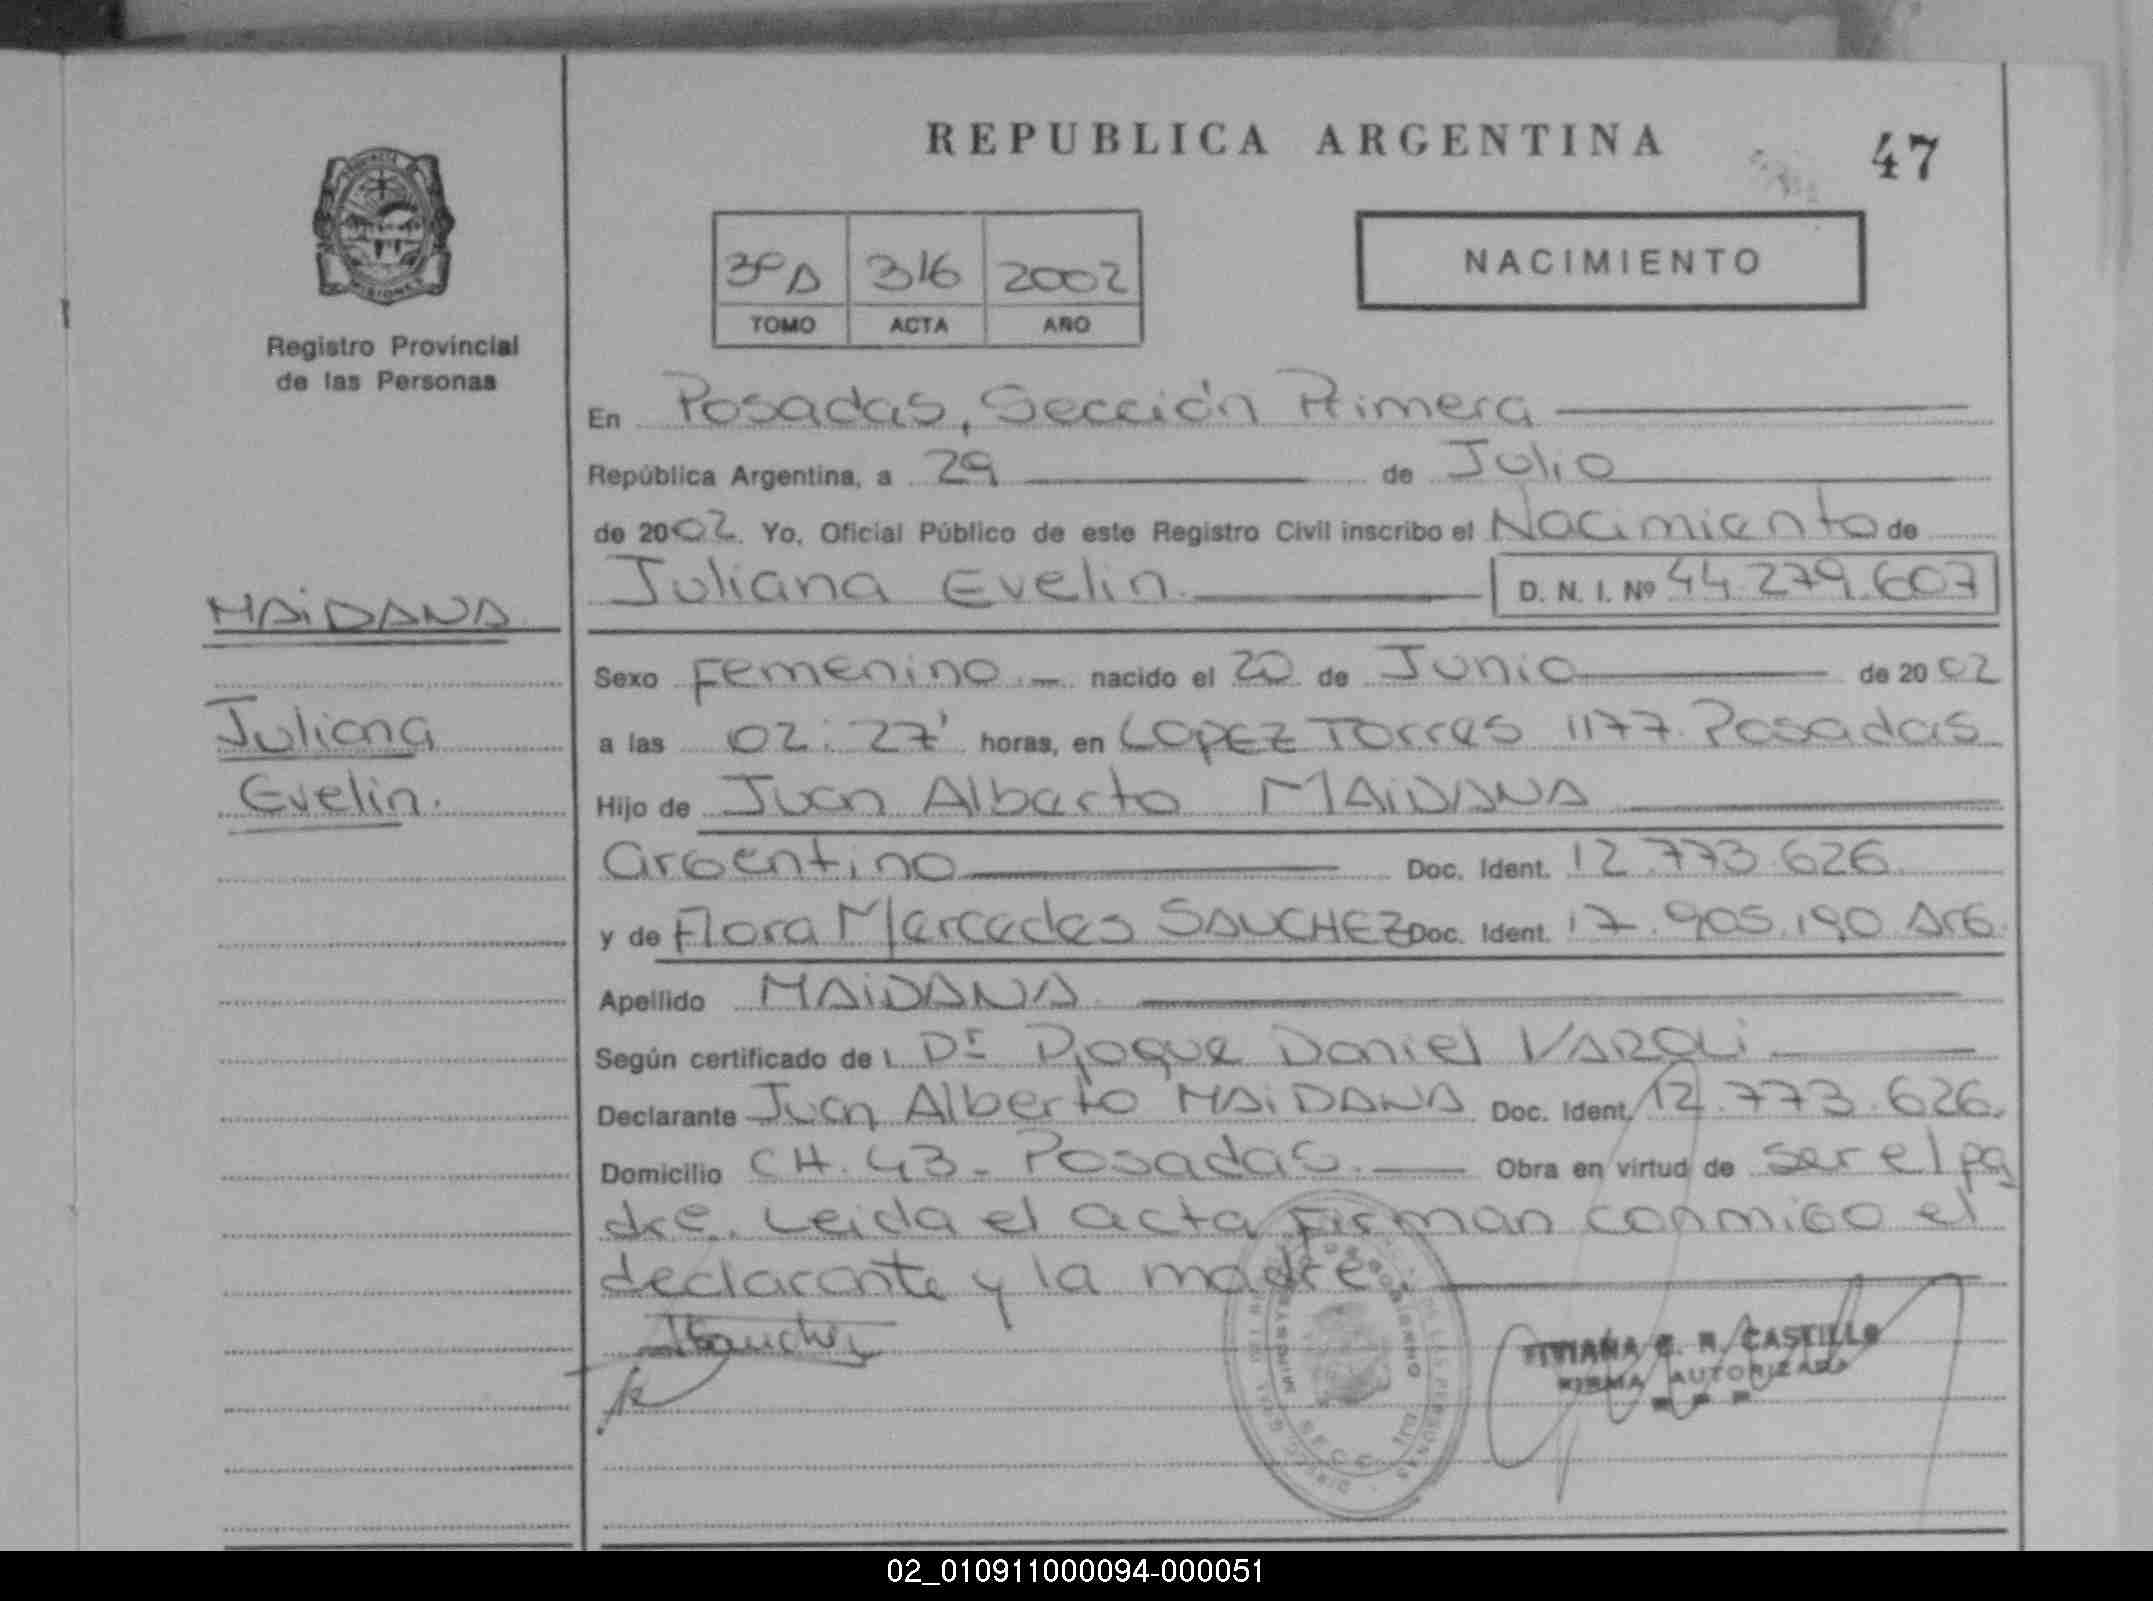 REPUBLICA ARGENTINA
47
MISIONES
Registro Provincial
de las Personas
3º A 316 2002
TOMO ACTA AÑO
NACIMIENTO
En Posadas, Sección Primera
República Argentina, a 29 de Julio
de 2002. Yo, Oficial Público de este Registro Civil inscribo el Nacimiento de
Juliana Evelin. D. N. I. Nº 44.279.607
MAiDANA
Juliana
Evelin.
Sexo Femenino nacido el 20 de Junio de 2002
a las 02:27' horas, en LOPEZ Torres 1177. Posadas
Hijo de Juan Alberto MAiDANA
argentino Doc. Ident. 12.773.626
y de Flora Mercedes SANCHEZ Doc. Ident. 17.905.190 Arg.
Apellido MAiDANA.
Según certificado de l Dr Roque Daniel
Declarante Juan Alberto MAiDANA Doc. Ident. 12.773.626.
Domicilio CH. 43 - Posadas. Obra en virtud de ser el pa
dre. Leida el acta firman conmigo el
declarante y la madre.
VIVIANA E. R. CASTILLO
FIRMA AUTORIZADA
02_010911000094-000051